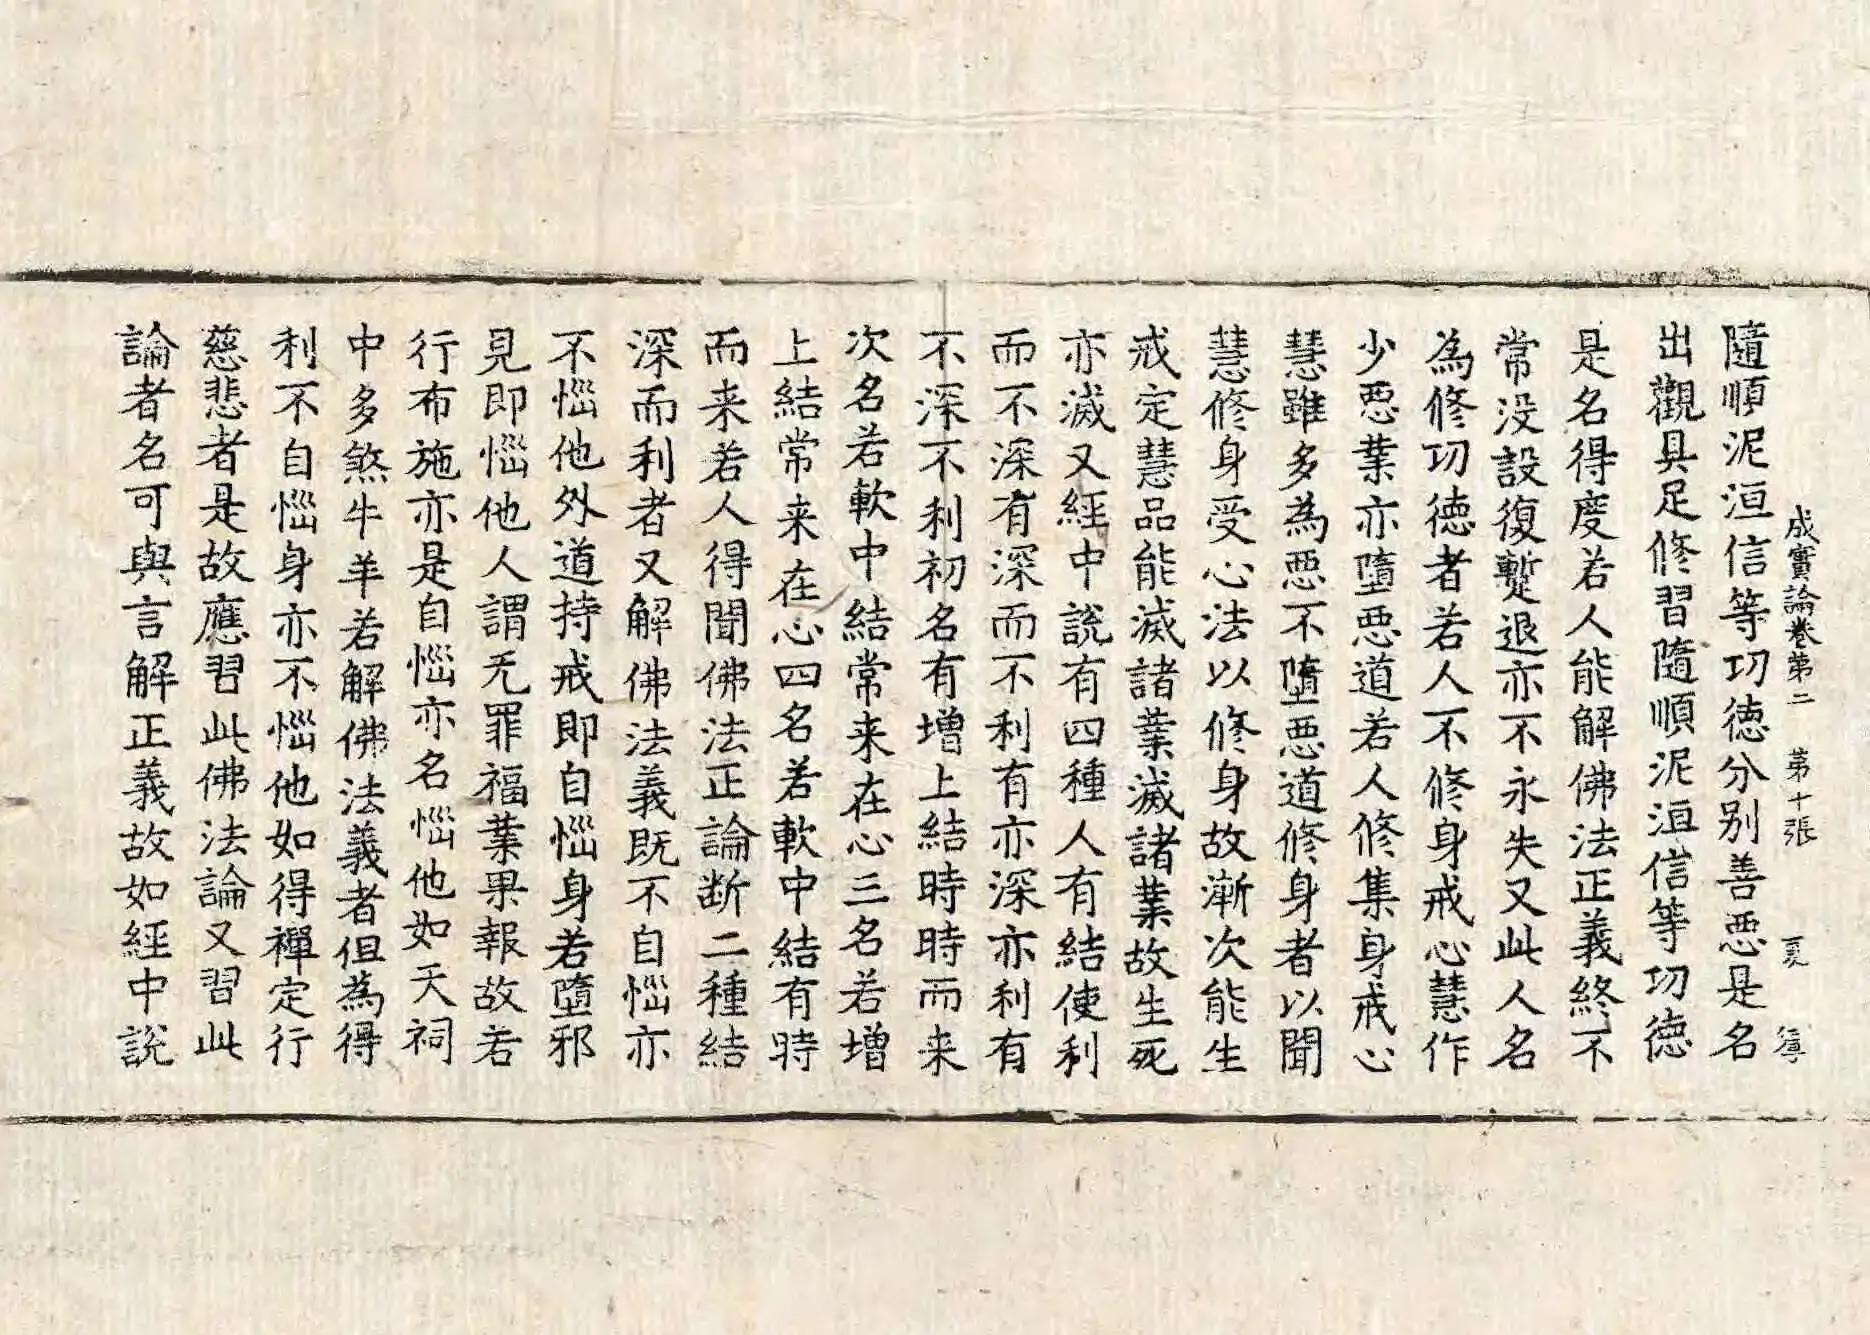 成實論卷第二　第十張
隨順泥洹信等功德分别善惡是名
出觀具足修習隨順泥洹信等功德
是名得度若人能解佛法正義終不
常没設復蹔退亦不永失又此人名
為修功德者若人不修身戒心慧作
少惡業亦墮惡道若人修集身戒心
慧雖多為惡不墮惡道修身者以聞
慧修身受心法以修身故漸次能生
戒定慧品能滅諸業滅諸業故生死
亦滅又經中說有四種人有結使利
而不深有深而不利有亦深亦利有
不深不利初名有增上結時時而来
次名若軟中結常来在心三名若增
上結常来在心四名若軟中結有時
而来若人得聞佛法正論断二種結
深而利者又解佛法義既不自惱亦
不惱他外道持戒即自惱身若墮邪
見即惱他人謂无罪福業果報故若
行布施亦是自惱亦名惱他如天祠
中多煞牛羊若解佛法義者但為得
利不自惱身亦不惱他如得禪定行
慈悲者是故應習此佛法論又習此
論者名可與言解正義故如經中說